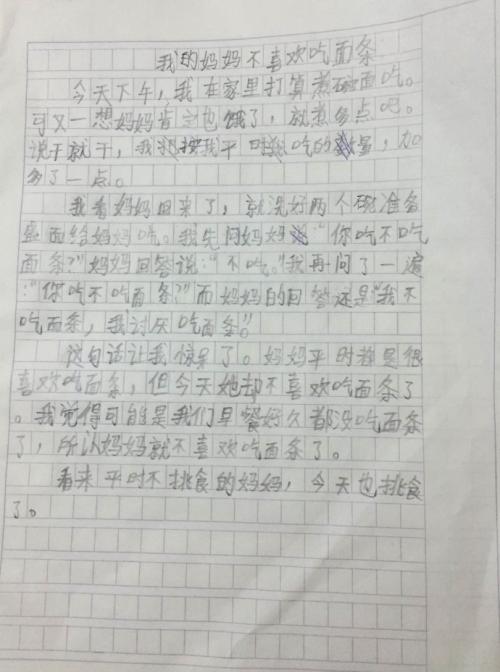 我的妈妈不喜欢吃面条
今天下午，我在家里打算煮碗面吃。
可又一想妈妈肯定也饿了，就煮多点吧。
说干就干，我想按我平时吃的数量，加
多了一点。
我看妈妈回来了，就洗好两个碗准备
盛面给妈妈吃。我先问妈妈："你吃不吃
面条？"妈妈回答说："不吃。"我再问了一遍
："你吃不吃面条？"而妈妈的回答还是"我不
吃面条，我讨厌吃面条"。
这句话让我惊呆了。妈妈平时都是很
喜欢吃面条，但今天她却不喜欢吃面条了
。我觉得可能是我们早餐好久都没吃面条
了，所认妈妈就不喜欢吃面条了。
看来平时不挑食的妈妈，今天也挑食
了。